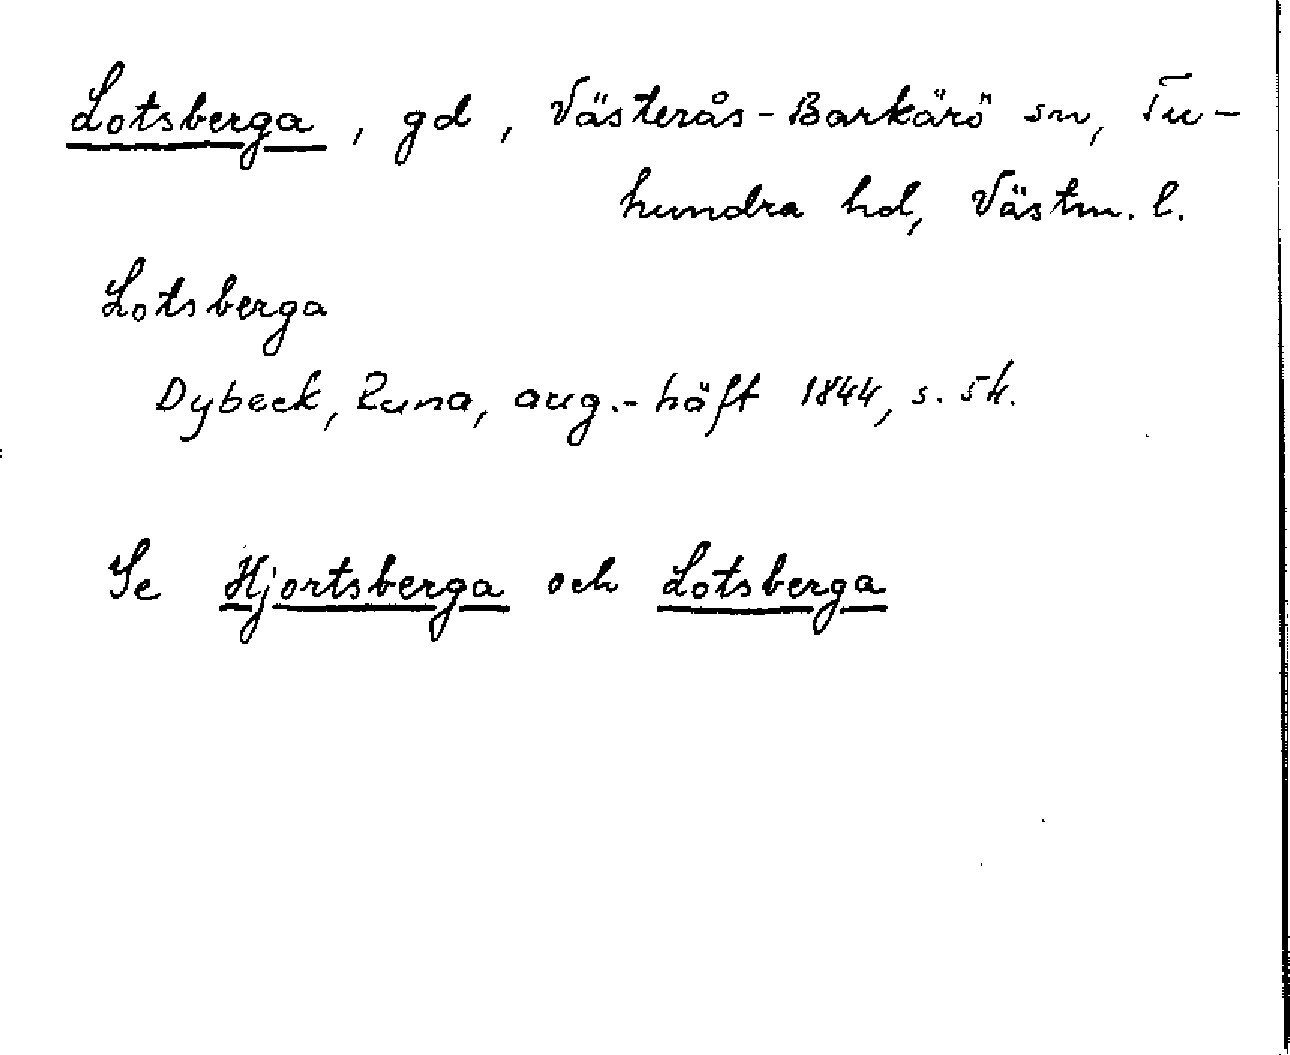 Lotsberga, gd, Västerås-Barkärö sn, Tu-
hundra hd, Västm. l.
Lotsberga
Dybeck, Runa, aug.-häft 1844, s. 54.
Se Hjortsberga och Lotsberga